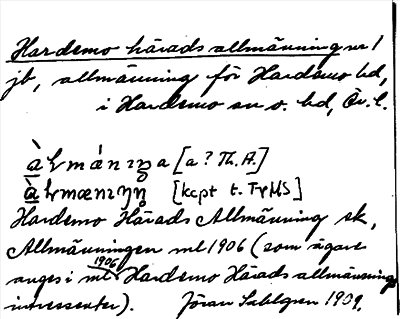 Hardemo härads allmänning nr 1
jb, allmänning för Hardemo hd,
i Hardemo sn o. hd, Ör. l.
[a? Th. A.]
[kcpt t. TyMS]
Hardemo Härads Allmänning sk,
Allmänningen ml 1906 (som ägare
anges i ml 1906 Hardemo Härads allmännings
intressenter). Jöran Sahlgren 1909.